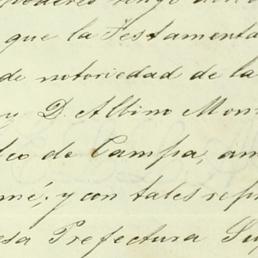 que la Testamenta
de notoriedad de la
y D. Albino Mon
eo de Campa, am
mé, y con tales rep
esa Prefectura Su